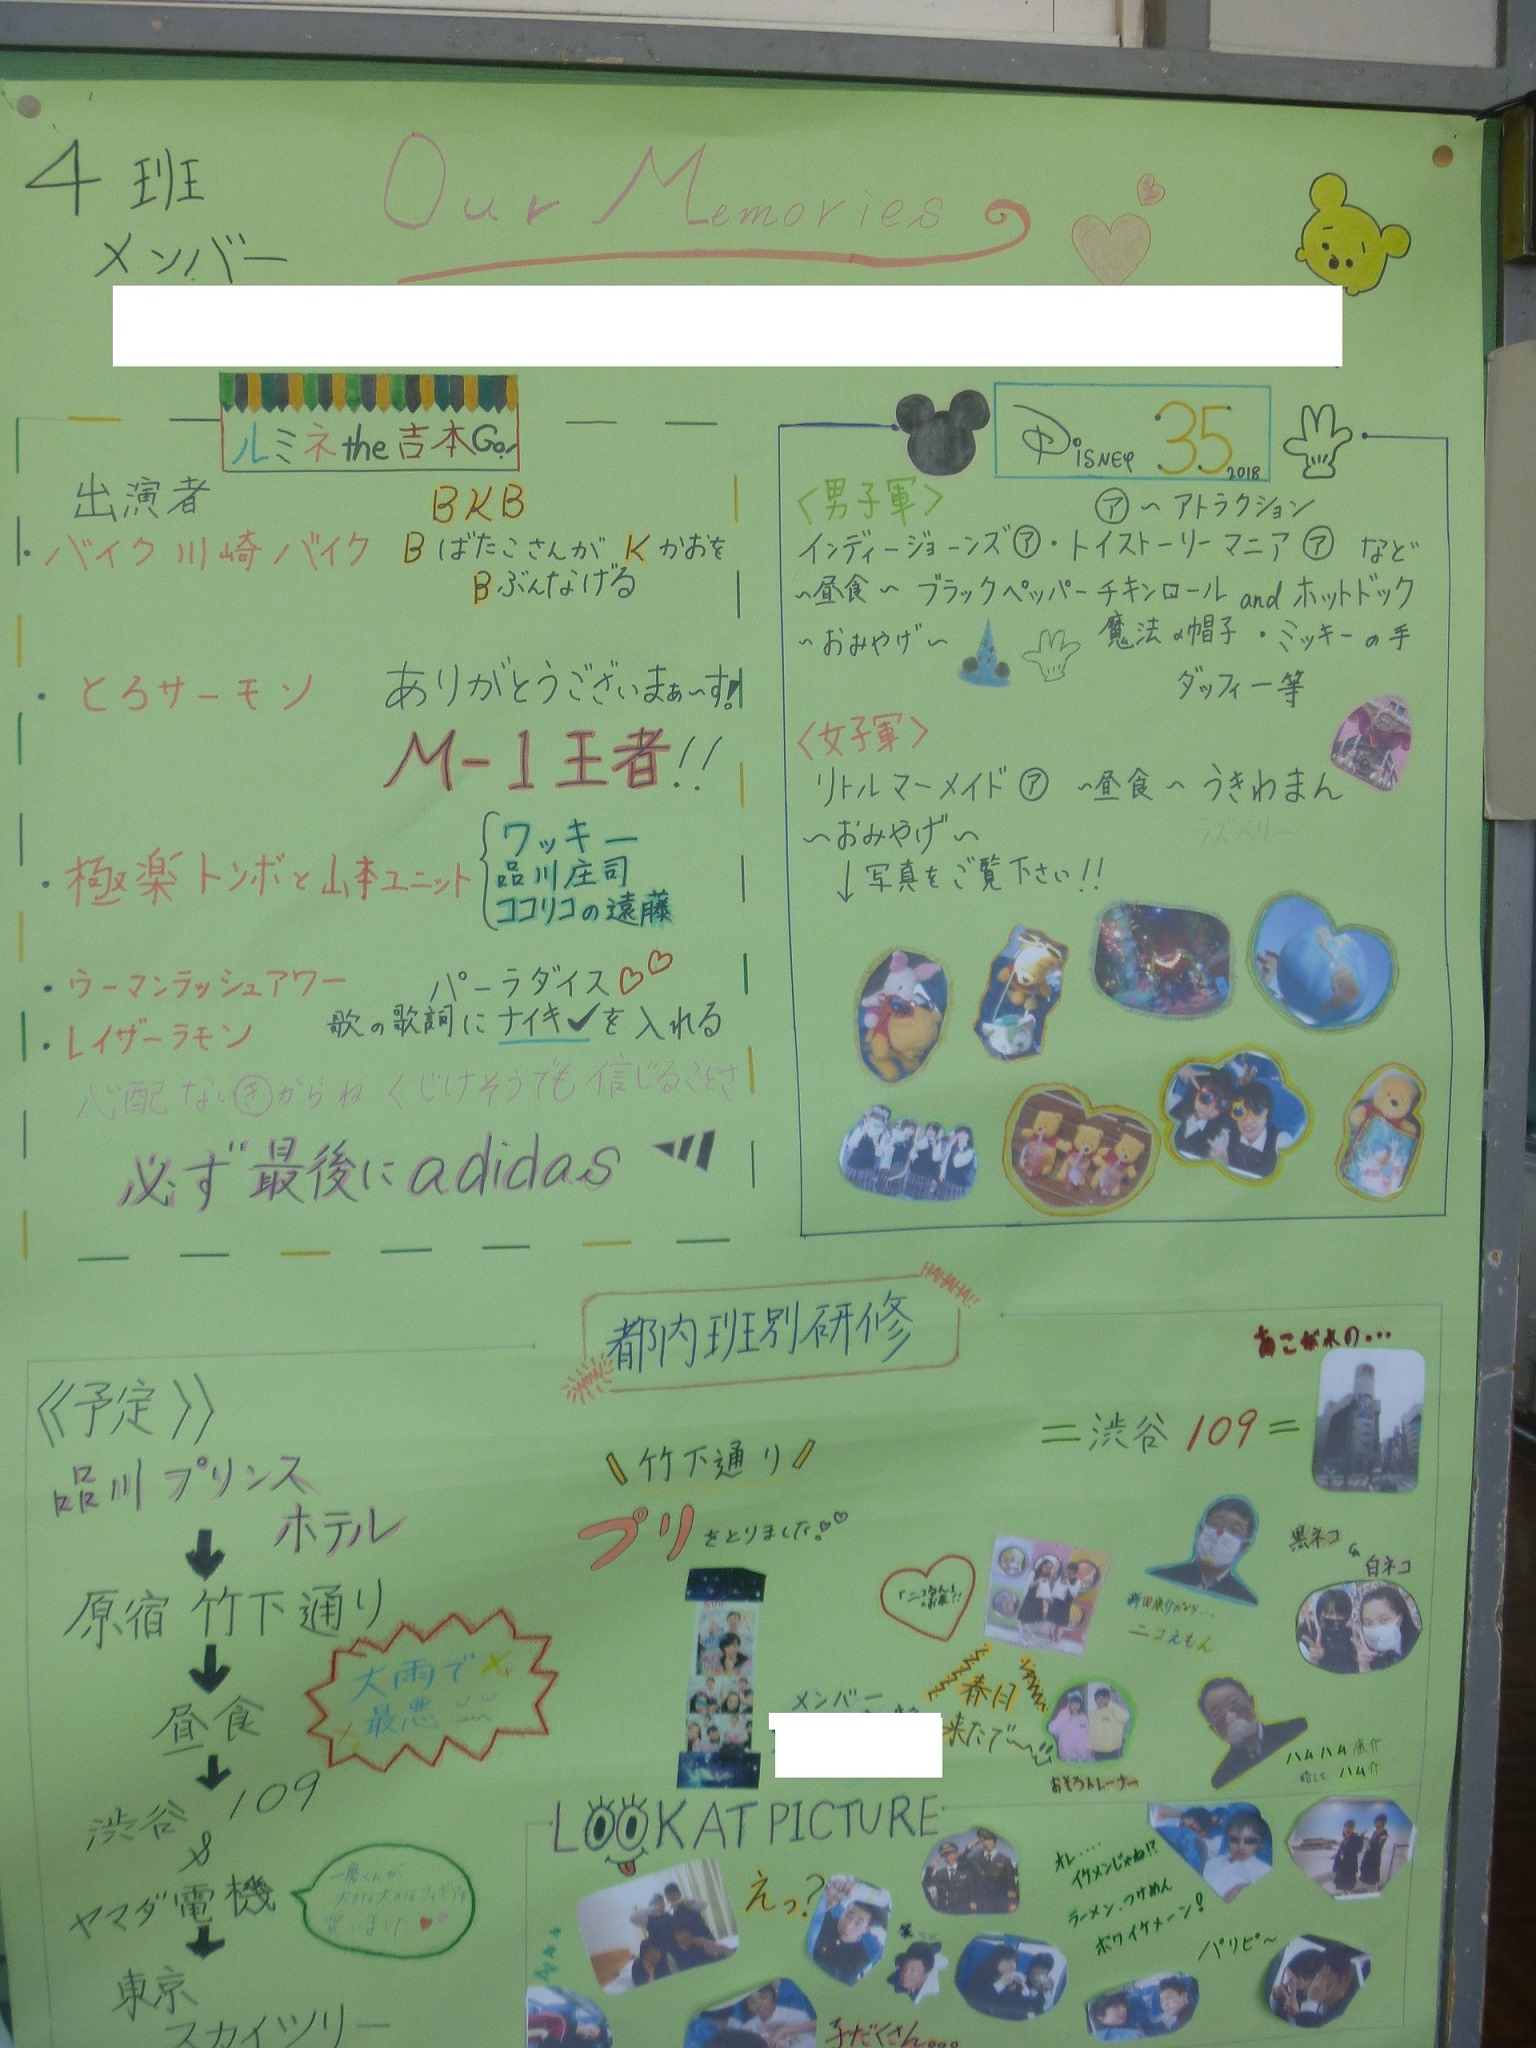 4班
Our Memories
メンバー
ルミネ the 吉本Go!
出演者
BKB
・バイク川崎バイク
BばたこさんがKかおを
Bぶんなげる
・とろサーモン
ありがとうございまぁ〜す!
M-1王者!!
・極楽トンボと山本ユニット
ワッキー
品川庄司
ココリコの遠藤
・ウーマンラッシュアワー
パーラダイス♡♡
・レイザーラモン
歌の歌詞にナイキ✓を入れる
心配ないきからね くじけそうでも 信じることさ
必ず最後に adidas
Disney 35 2018
<男子軍>
ア〜アトラクション
インディージョーンズア・トイストーリーマニアア など
〜昼食〜 ブラックペッパーチキンロール and ホットドック
〜おみやげ〜
魔法の帽子・ミッキーの手
ダッフィー等
<女子軍>
リトルマーメイドア 〜昼食〜 うきわまん
ラズベリー
〜おみやげ〜
↓写真をご覧下さい!!
都内班別研修
HAHAHA!!
WOW!
《予定》
品川プリンス
ホテル
↓
原宿 竹下通り
↓
昼食
↓
渋谷109
&
ヤマダ電機
↓
東京
スカイツリー
大雨で
最悪
買いました♥♥
\竹下通り/
プリをとりました!♡♡
メンバー
あこがれの…
=渋谷109=
春日
来たで〜
おそろトレーナー
ニコえもん
黒ネコ
&
白ネコ
ハムハム康介
略して ハム介
LOOK AT PICTURE
えっ?
笑
オレ……
イケメンじゃね!?
ラーメン、つけめん
ボクイケメーン!
パリピ〜
手だくさん…